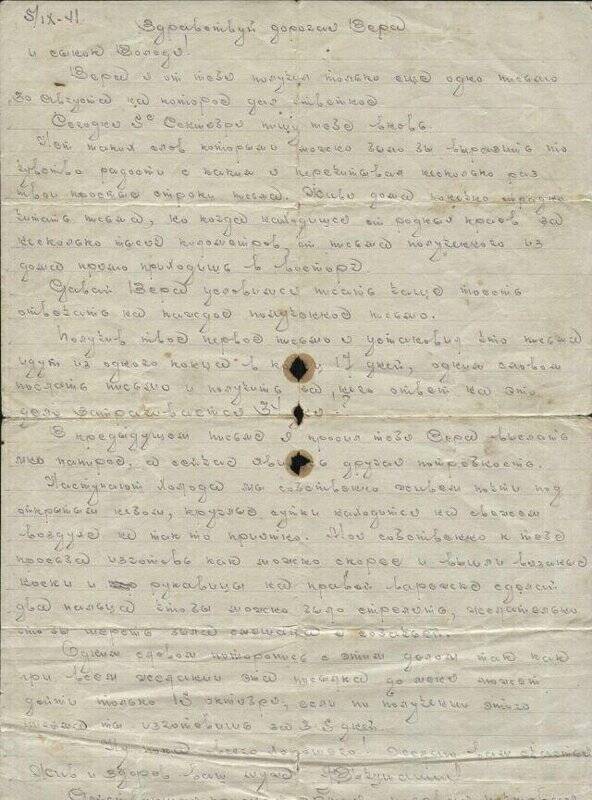 5/IX-41
Здравствуй дорогая Вера
и сынок Володя.
Вера я от тебя получил только еще одно письмо
30 августа на которое дал ответ
Сегодня 5го Сентября пишу тебе вновь.
Нет таких слов которыми можно было бы выразить то
чувство радости с каким я перечитывал несколько раз
твои простые строки письма. Живя дома конечно странно
читать письма, но когда находишся от родных краев за
несколько тысяч километров, от письма полученного из
дома прямо приходишь в восторг
Давай Вера условимся писать чаще тоесть
отвечать на каждое полученное письмо.
Получив твое первое письмо я установил что письма
идут из одного конца в 17 дней, одним словом
послать письмо и получить на него ответ на это
дело затрачивается 34 дня
В предыдущем письме я просил тебя Вера выслать
мне папирос, а сейчас другая потребность.
Наступают холода мы собственно живем почти под
открытым небом, круглые сутки находится на свежем
воздухе не так то приятно. Моя собственно к тебе
просьба изготовь как можно скорее и вышли вязаные
носки и рукавицы на правой варежке сделай
два пальца чтобы можно было стрелять, желательно
чтобы шерсть была смешана с собачьей.
Одним словом поторопись с этим делом так как
при всем желании эта посылка до меня может
дойти только 15 октября, если по получении этого
письма ты изготовишь за 3-5 дней
Ну пока всего хорошего! Желаю вам счастья
Жив и здоров ваш муж